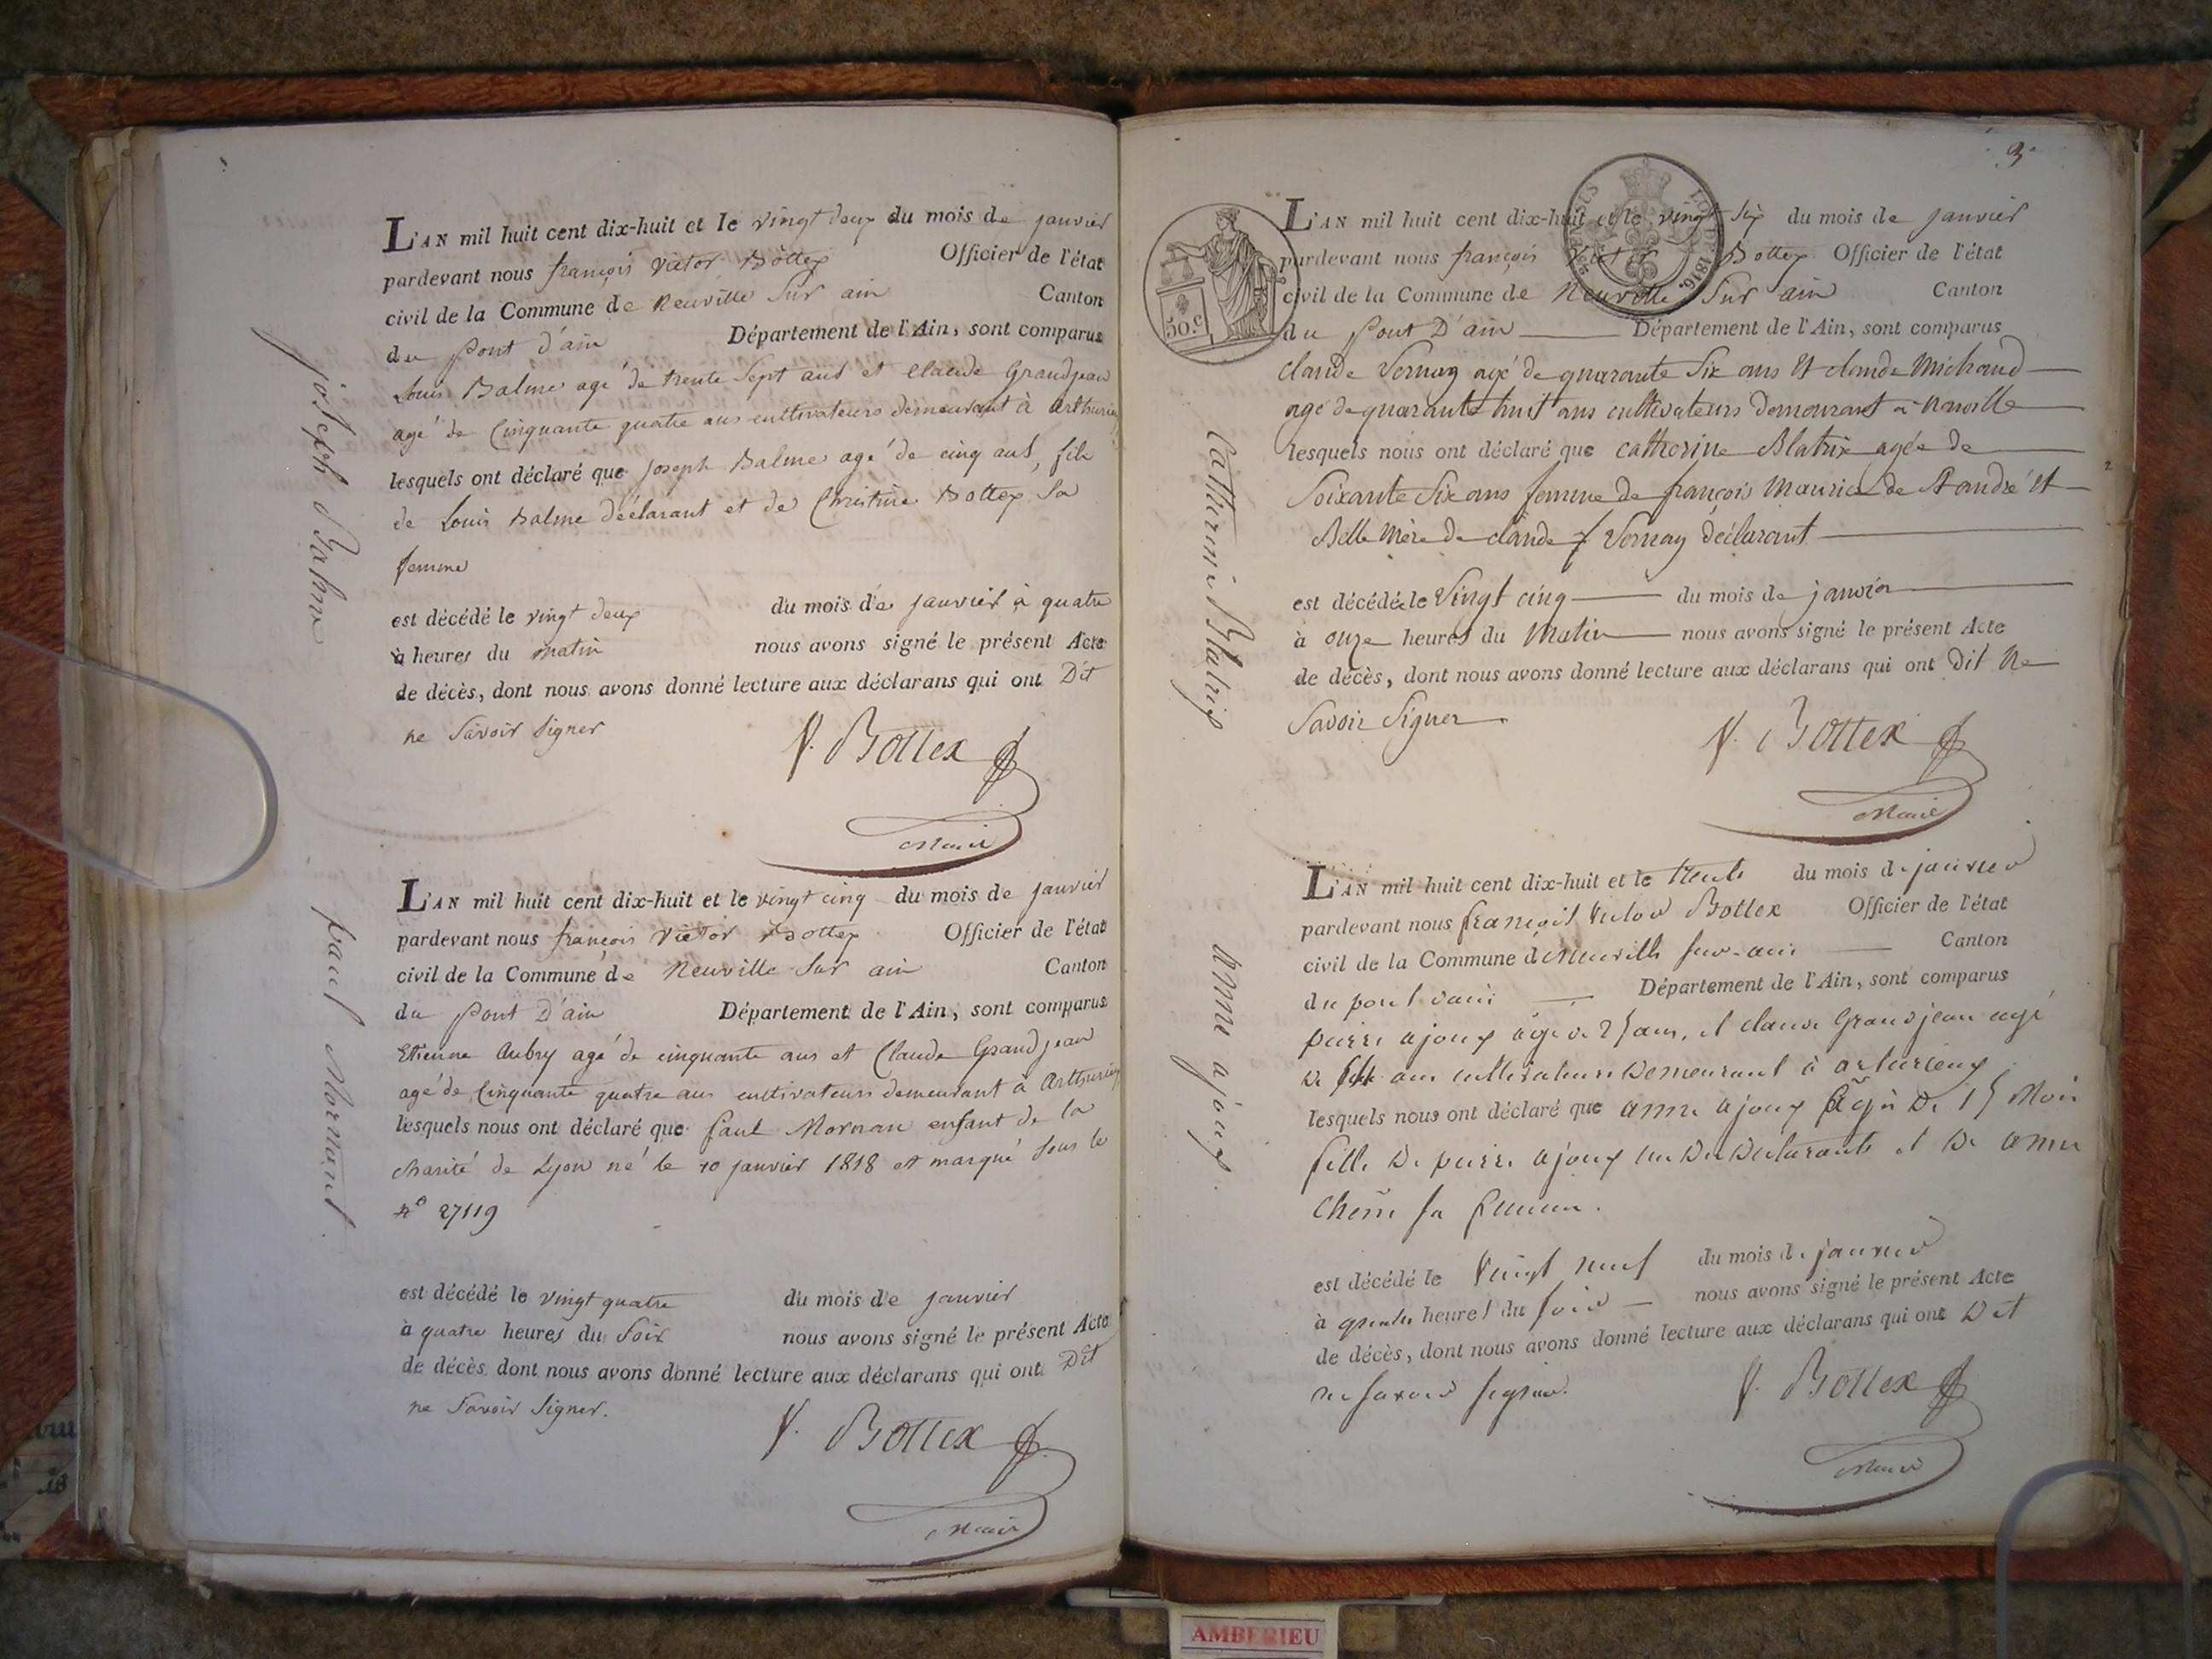 L'AN mil huit cent dix-huit et le vingt deux du mois de janvier
pardevant nous françois victor Bottex Officier de l'état
civil de la Commune de Neuville Sur ain Canton
du Pont d'ain Département de l'Ain, sont comparus
Louis Balme agé de trente Sept ans et Claude Grandjean
agé de Cinquante quatre ans cultivateurs demeurant à
lesquels ont déclaré que joseph Balme agé de cinq ans, fils
de Louis Balme déclarant et de Christine Bottex Sa
femme
est décédé le vingt deux du mois de janvier à quatre
à heures du matin nous avons signé le présent Acte
de décès, dont nous avons donné lecture aux déclarans qui ont Dit
ne Savoir Signer
V. Bottex
Maire
joseph Balme
L'AN mil huit cent dix-huit et le vingt cinq du mois de janvier
pardevant nous françois victor Bottex Officier de l'état
civil de la Commune de Neuville Sur ain Canton
du Pont D'ain Département de l'Ain, sont comparus
Etienne Aubry agé de cinquante ans et Claude Grandjean
agé de Cinquante quatre ans cultivateurs demeurant à
lesquels nous ont déclaré que paul Mornan enfant de la
charité de Lyon né le 10 janvier 1818 et marqué sous le
n° 27119
est décédé le vingt quatre du mois de janvier
à quatre heures du Soir nous avons signé le présent Acte
de décès dont nous avons donné lecture aux déclarans qui ont Dit
ne Savoir Signer.
V. Bottex
Maire
paul Mornant
3
50.c
1816
L'AN mil huit cent dix-huit et le vingt Six du mois de janvier
pardevant nous françois Victor Bottex Officier de l'état
civil de la Commune de Neuville Sur ain Canton
du Pont D'ain Département de l'Ain, sont comparus
claude Vernay agé de quarante Six ans et claude Michaud
agé de quarante huit ans cultivateurs demeurant à Neuville
lesquels nous ont déclaré que catherine Blatrix agée de
Soixante Six ans femme de françois Maurice de St andré et
Belle Mère de claude Vernay déclarant
est décédée le Vingt cinq du mois de janvier
à onze heures du Matin nous avons signé le présent Acte
de décès, dont nous avons donné lecture aux déclarans qui ont dit Ne
Savoir Signer
V. Bottex
Maire
Catherine Blatrix
L'AN mil huit cent dix-huit et le trente du mois de janvier
pardevant nous françois victor Bottex Officier de l'état
civil de la Commune de Neuville sur-ain Canton
du pont d'ain Département de l'Ain, sont comparus
pierre ajoux agé de ans, et claude Grandjean agé
de ans cultivateurs Demeurant à
lesquels nous ont déclaré que anne ajoux agée De 15 Mois
fille De pierre ajoux un Des Declarants et De anne
sa femme.
est décédé le Vingt neuf du mois de janvier
à quatre heures du soir nous avons signé le présent Acte
de décès, dont nous avons donné lecture aux déclarans qui ont Dit
ne savoir signer.
V. Bottex
Maire
anne ajoux.
AMBERIEU